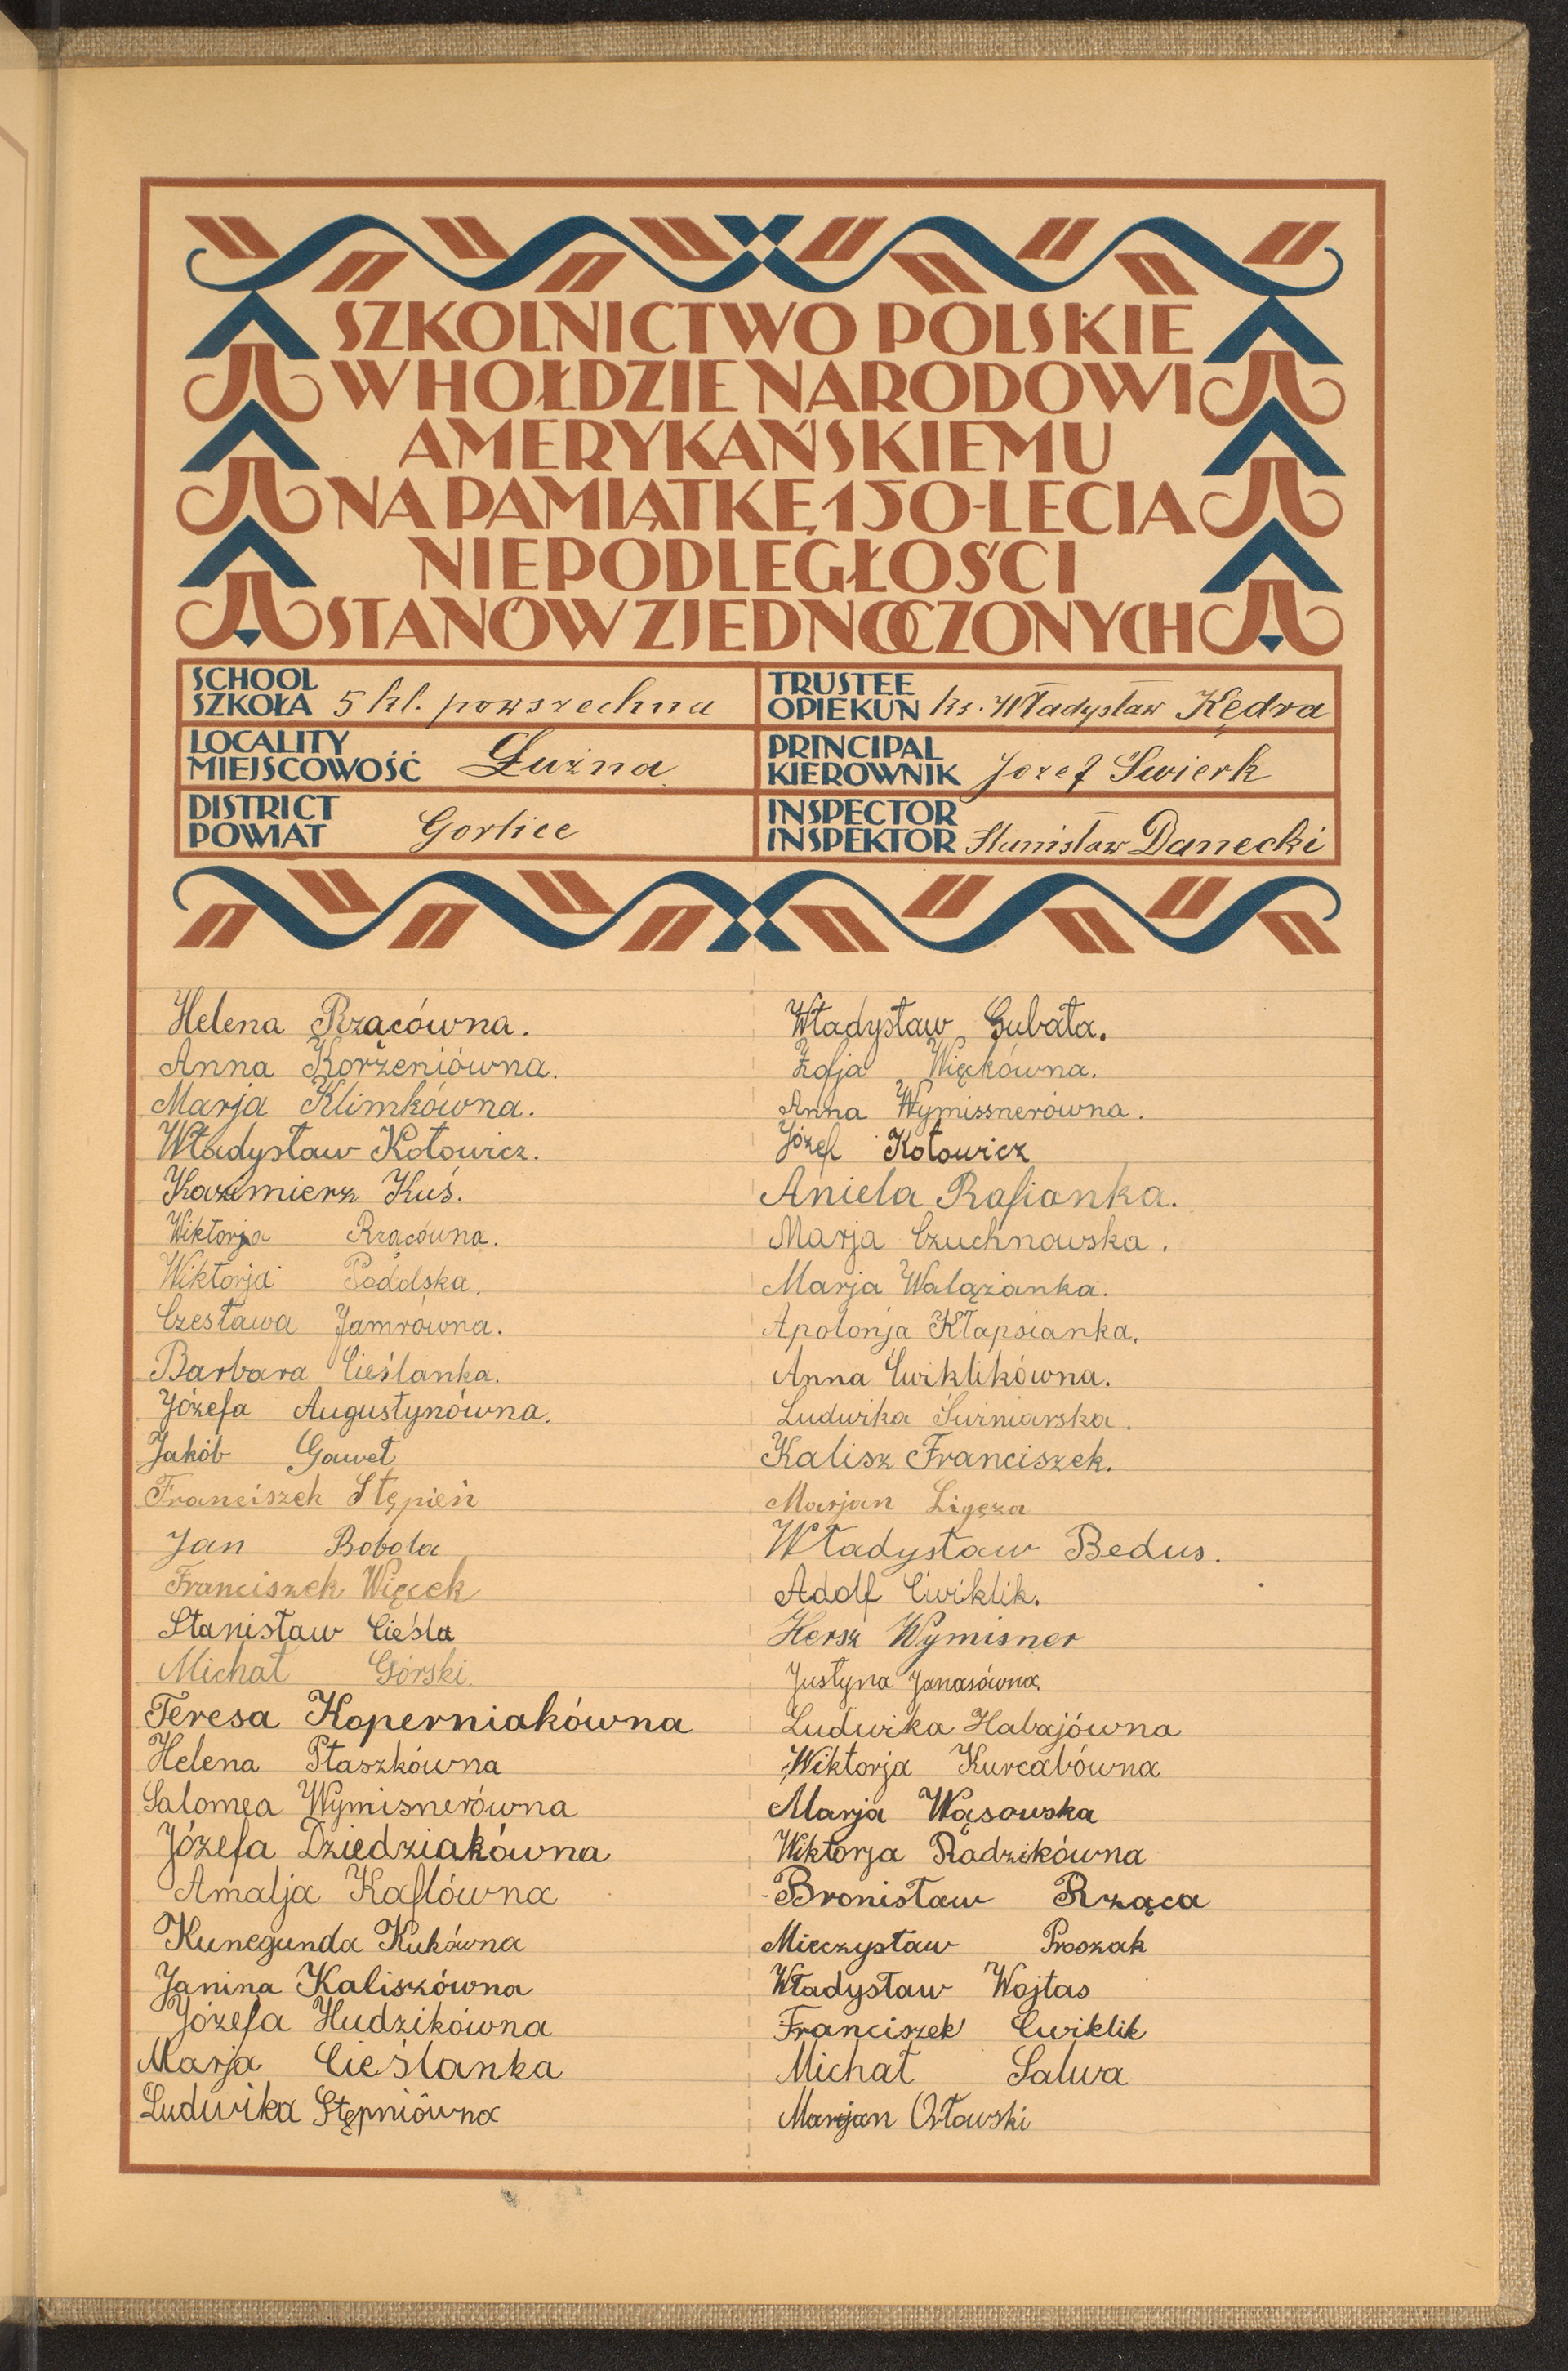 SZKOLNICTWO POLSKIE
W HOŁDZIE NARODOWI
AMERYKAŃSKIEMU
NA PAMIĄTKĘ 150-LECIA
NIEPODLEGŁOŚCI
STANÓW ZJEDNOCZONYCH
SCHOOL
SZKOŁA 5 kl. powszechna
TRUSTEE
OPIEKUN ks. Władysław Kędra
LOCALITY
MIEJSCOWOŚĆ Łużna
PRINCIPAL
KIEROWNIK Józef Świerk
DISTRICT
POWIAT Gorlice
INSPECTOR
INSPEKTOR Stanisław Danecki
Helena Rzącówna.
Anna Korzeniówna.
Marja Klimkówna.
Władysław Kotowicz.
Kazimierz Kuś.
Wiktorja Rzącówna.
Wiktorja Podolska.
Czesława Jamrówna.
Barbara Cieślanka.
Józefa Augustynówna.
Jakób Gaweł
Franciszek Stępień
Jan Bobola
Franciszek Więcek
Stanisław Cieśla
Michał Górski.
Teresa Koperniakówna
Helena Ptaszkówna
Salomea Wymisnerówna
Józefa Dziedziakówna
Amalja Kaflówna
Kunegunda Kukówna
Janina Kaliszówna
Józefa Hudzikówna
Marja Cieślanka
Ludwika Stępniówna
Władysław Gubała.
Zofja Więckówna.
Anna Wymissnerówna.
Józef Kotowicz
Aniela Rafianka.
Marja Czuchnowska.
Marja Walążanka.
Apolonja Kłapsianka.
Anna Ćwiklikówna.
Ludwika Świniarska.
Kalisz Franciszek.
Marjan Ligęza
Władysław Bedus.
Adolf Ćwiklik.
Hersz Wymisner
Justyna Janasówna.
Ludwika Habajówna
Wiktorja Kurcabówna
Marja Wąsowska
Wiktorja Radzikówna
Bronisław Rząca
Mieczysław Proszak
Władysław Wojtas
Franciszek Ćwiklik
Michał Salwa
Marjan Orłowski